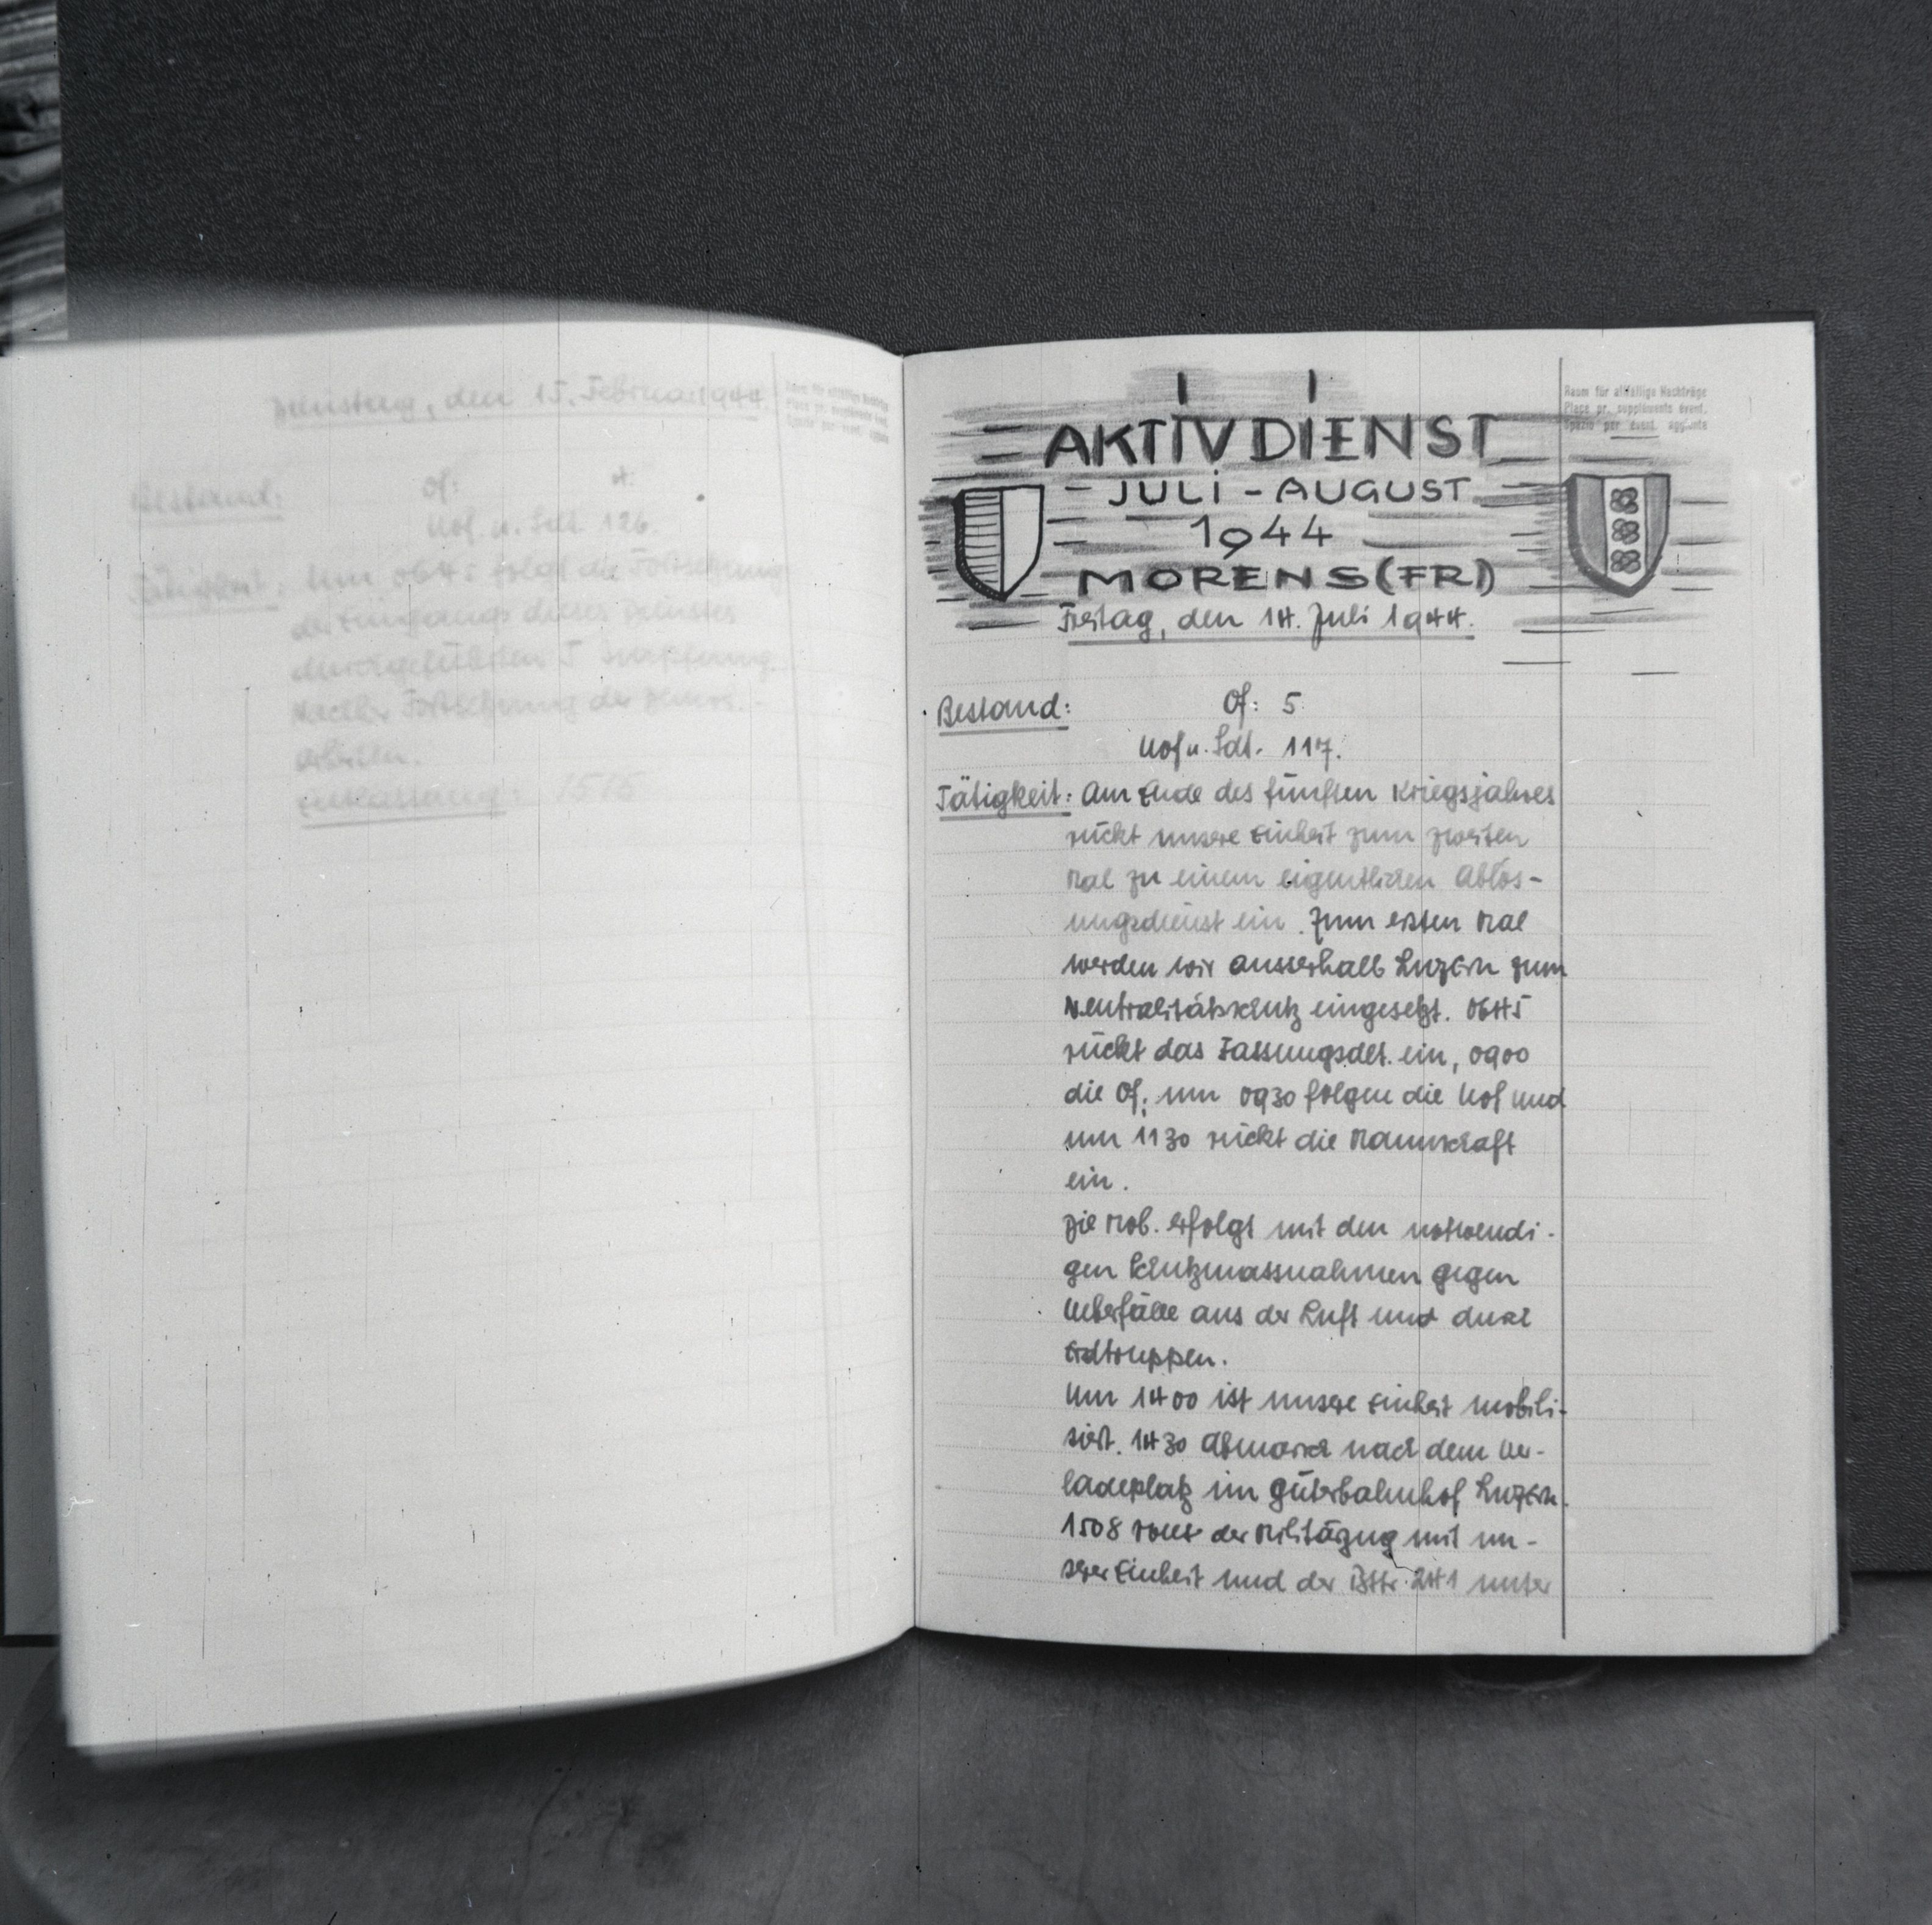 Dienstag, den 15. Februar 1944.
Raum für allfällige Nachträge
Place pr. suppléments évent.
Spazio per event. aggiunte
Bestand: Of: 4:
Uof. u. Sdt. 126.
Tätigkeit: Um 0645 folgt die Fortsetzung
der Eingangs dieses Dienstes
durchgeführten Impfung.
Fortsetzung der
arbeiten.
Entlassung: 1515
AKTIVDIENST
- JULI - AUGUST
1944
MORENS (FR)
Freitag, den 14. Juli 1944.
Raum für allfällige Nachträge
Place pr. suppléments évent.
Spazio per event. aggiunte
Bestand: Of: 5
Uof u. Sdt. 117.
Tätigkeit: Am Ende des fünften Kriegsjahres
rückt unsere Einheit zum zweiten
Mal zu einem eigentlichen Ablös-
ungsdienst ein. Zum ersten Mal
werden wir ausserhalb Luzern zum
Neutralitätsschutz eingesetzt. 0645
rückt das Fassungsdet. ein, 0900
die Of; um 0930 folgen die Uof und
um 1130 rückt die Mannschaft
ein.
Die Mob. erfolgt mit den notwendi-
gen Schutzmassnahmen gegen
Ueberfälle aus der Luft und durch
Erdtruppen.
Um 1400 ist unsere Einheit mobili-
siert. 1430 Abmarsch nach dem Ver-
ladeplatz im Güterbahnhof Luzern.
1508 rollt der Militärzug mit un-
serer Einheit und der Bttr. 241 unter